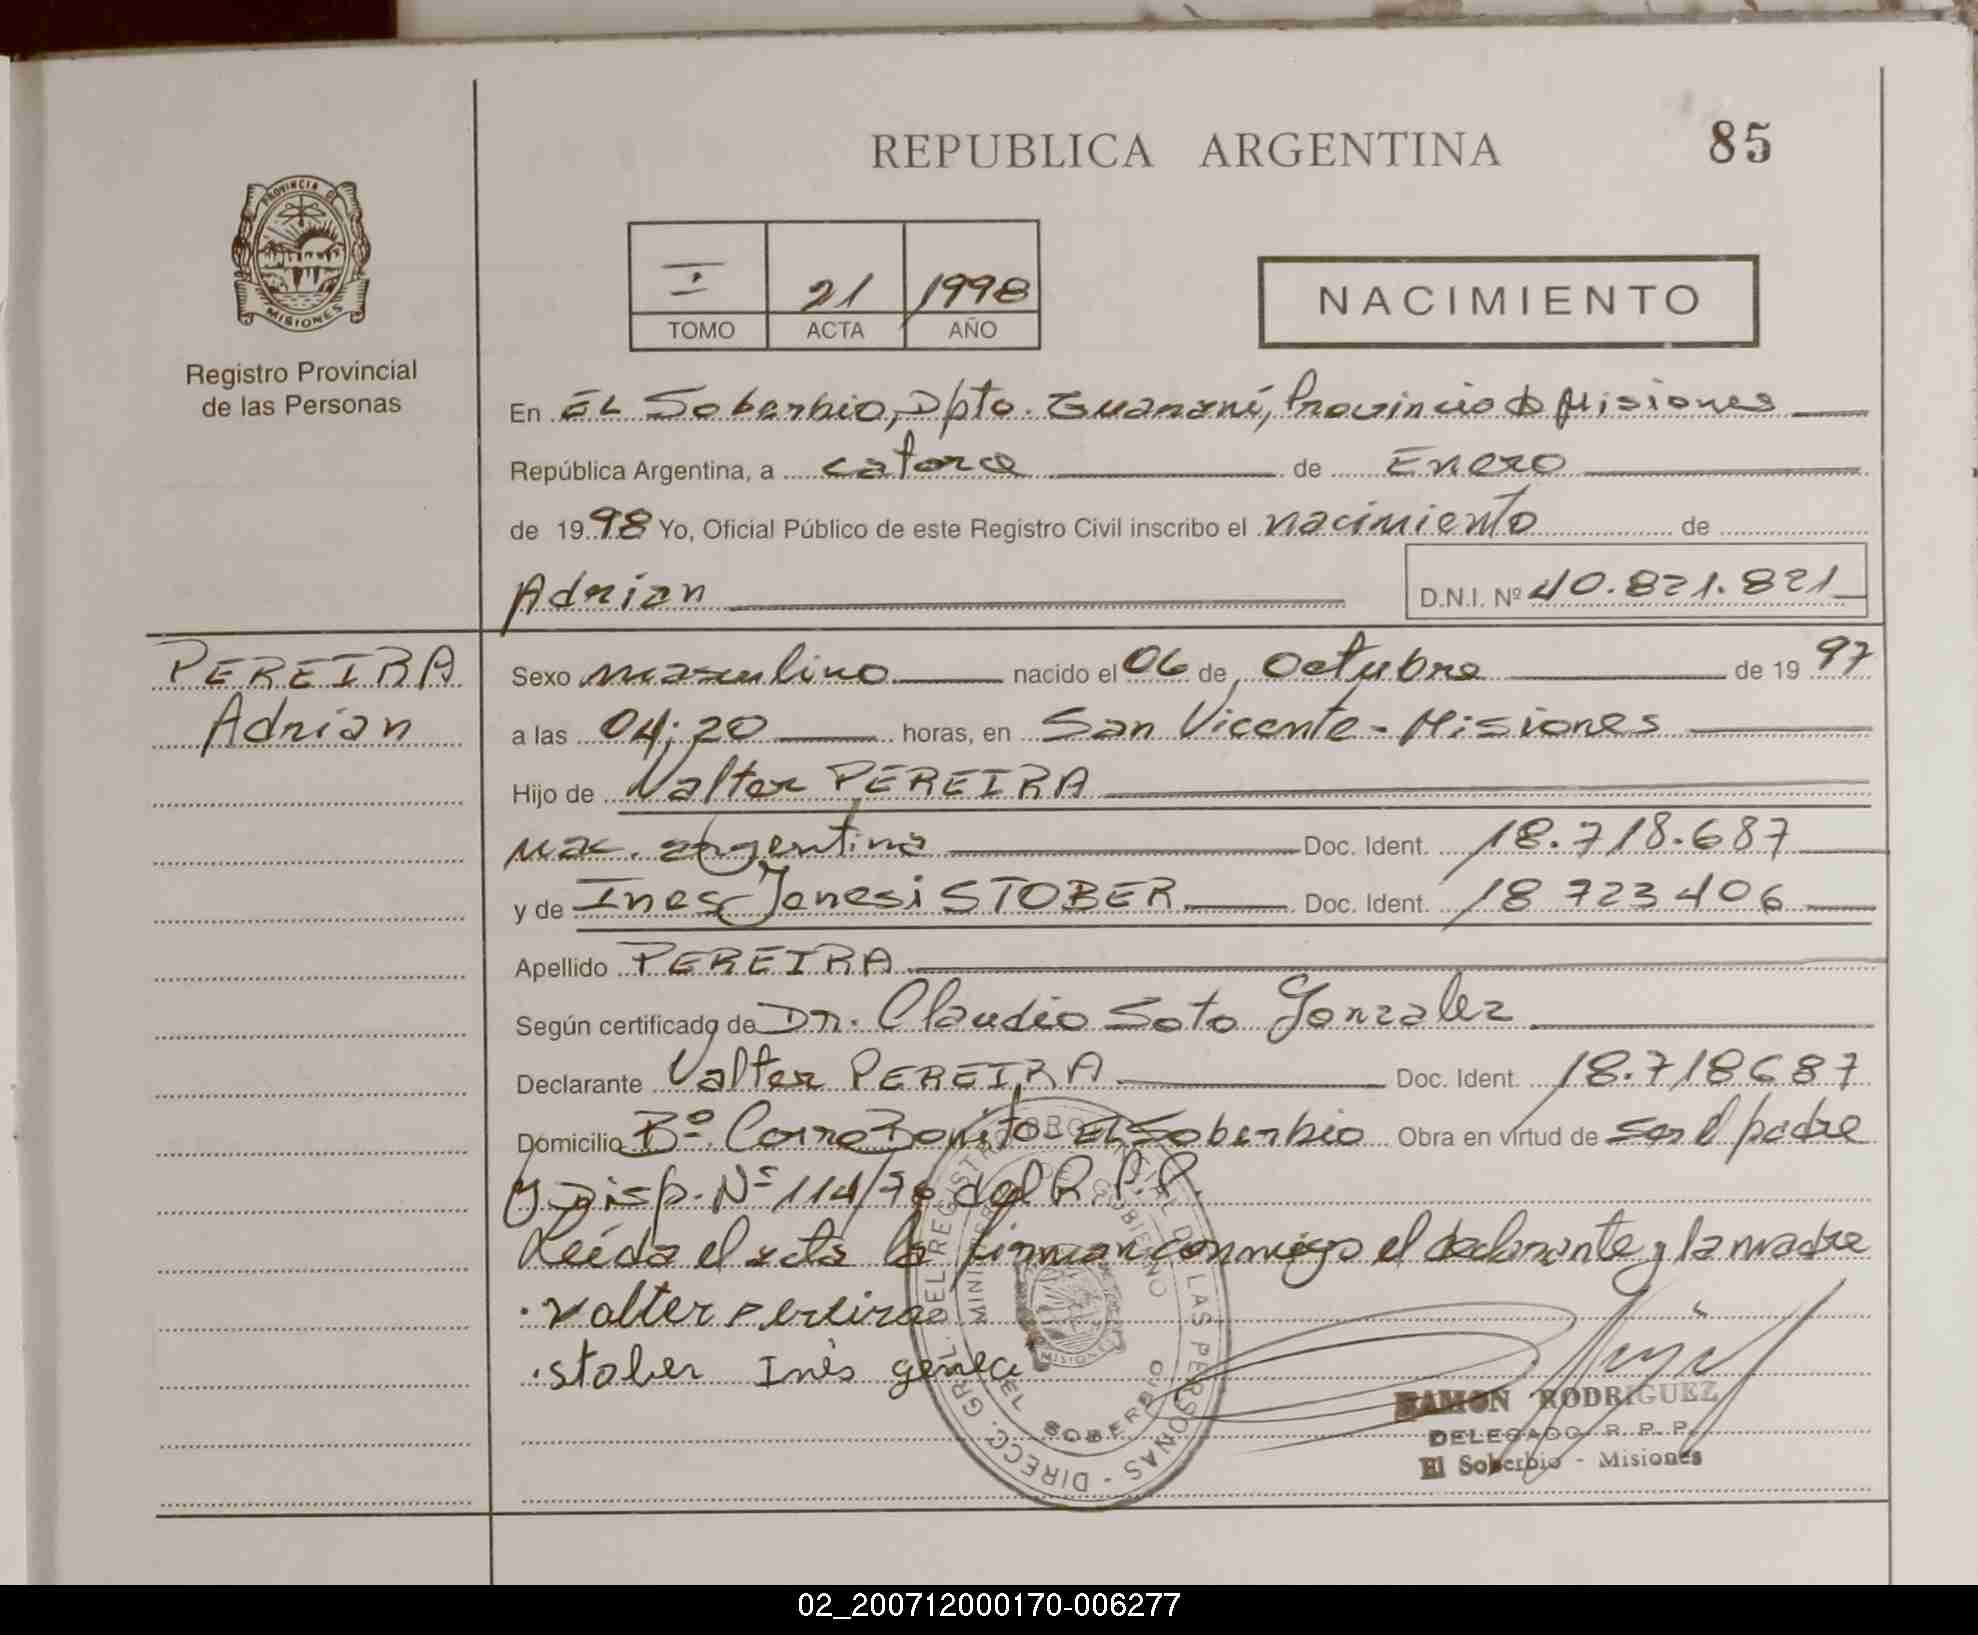 REPUBLICA ARGENTINA
85
PROVINCIA DE
MISIONES
Registro Provincial
de las Personas
I 21 1998
TOMO ACTA AÑO
NACIMIENTO
En EL Soberbio, Dpto. Guaraní, Provincia de Misiones
República Argentina, a catorce de Enero
de 1998 Yo, Oficial Público de este Registro Civil inscribo el nacimiento de
Adrian
D.N.I. Nº 40.821.821
PEREIRA
Adrian
Sexo masculino nacido el 06 de Octubre de 1997
a las 04:20 horas, en San Vicente - Misiones
Hijo de Valter PEREIRA
nac. argentina Doc. Ident. 18.718.687
y de Ines Jenesi STOBER Doc. Ident. 18 723 406
Apellido PEREIRA
Según certificado de Dr. Claudio Soto Gonzalez
Declarante Valter PEREIRA Doc. Ident. 18.718687
Domicilio Bº Cerro Bonito - EL Soberbio Obra en virtud de ser el padre
y Disp. Nº 114/76 del R.P.P.
Leída el acta la firman conmigo el declarante y la madre
. valter Pereira
. stober Inès geneci
DIRECC. GRAL. DEL REGISTRO PROVINCIAL DE LAS PERSONAS
GOBIERNO
MISIONES
EL SOBERBIO
RAMON RODRIGUEZ
DELEGADO R. P. P.
El Soberbio - Misiones
02_200712000170-006277